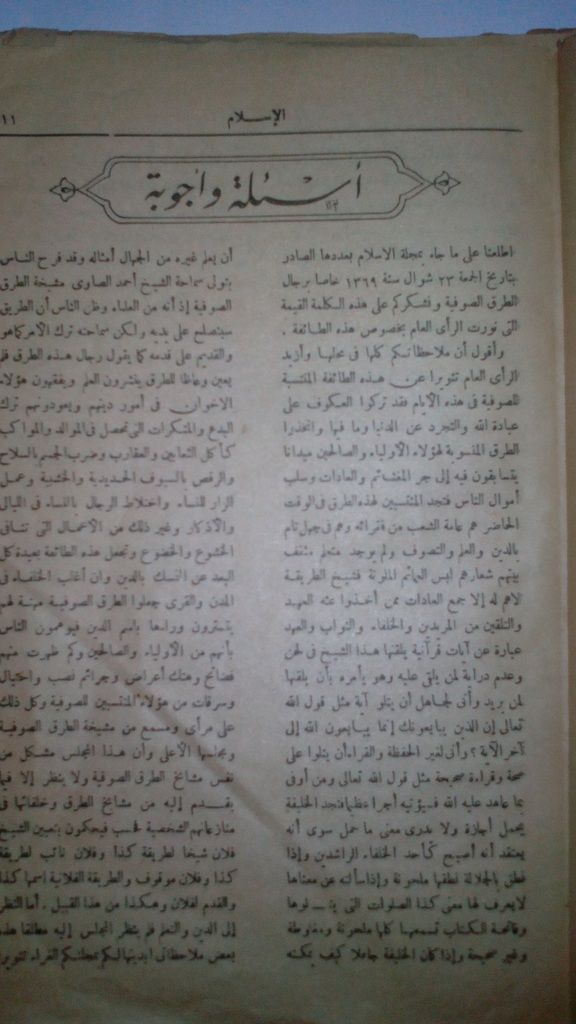 الإسلام
١١
أسئلة وأجوبة
اطلعنا على ما جاء بمجلة الاسلام بعددها الصادر
بتاريخ الجمعة ٢٣ شوال سنة ١٣٦٩ خاصا برجال
الطرق الصوفية ونشكركم على هذه الكلمة القيمة
التى نورت الرأى العام بخصوص هذه الطائفة .
وأقول أن ملاحظاتكم كلها فى محلها وأزيد
الرأى العام تنويرا عن هذه الطائفة المنتسبة
للصوفية فى هذه الأيام فقد تركوا العكوف على
عبادة الله والتجرد عن الدنيا وما فيها واتخذوا
الطرق المنسوبة لهؤلاء الأولياء والصالحين ميدانا
يتسابقون فيه إلى جر المغانم والعادات وسلب
أموال الناس فتجد المنتسبين لهذه الطرق فى الوقت
الحاضر هم عامة الشعب من فقرائه وهم فى جهل تام
بالدين والعلم والتصوف ولم يوجد متعلم مثقف
بينهم شعارهم لبس العمائم الملونة فشيخ الطريقة
لاهم له إلا جمع العادات ممن أخذوا عنه العهد
والتلقين من المريدين والخلفاء والنواب والعهد
عبارة عن آيات قرآنية يلقنها هذا الشيخ فى لحن
وعدم دراية لمن يلقى عليه وهو يأمره بأن يلقنها
لمن يريد وأنى لجاهل أن يتلو آية مثل قول الله
تعالى إن الذين يبايعونك إنما يبايعون الله إلى
آخر الآية ؟ وأنى لغير الحفظة والقراء أن يتلوا على
صحة وقراءة صحيحة مثل قول الله تعالى ومن أوفى
بما عاهد عليه الله فسيؤتيه أجرا عظيما فتجد الخليفة
يحمل أجازة ولا يدرى معنى ما حمل سوى أنه
يعتقد أنه أصبح كأحد الخلفاء الراشدين وإذا
نطق بالجلالة نطقها ملحونة وإذا سألته عن معناها
لا يعرف لها معنى كذا الصلوات التى يتلوها
وفاتحة الكتاب تسمعها كلها ملحونة ومغلوطة
وغير صحيحة وإذا كان الخليفة جاهلا كيف يمكنه
أن يعلم غيره من الجهال أمثاله وقد فرح الناس
بتولى سماحة الشيخ أحمد الصاوى مشيخة الطرق
الصوفية إذ أنه من العلماء وظن الناس أن الطريق
سينصلح على يديه ولكن سماحته ترك الأمر كما هو
والقديم على قدمه كما يقول رجال هذه الطرق فلم
يعين وعاظا للطرق ينشرون العلم ويفقهون هؤلاء
الاخوان فى أمور دينهم ويعودونهم ترك
البدع والمنكرات التى تحصل فى الموالد والمواكب
كأكل الثعابين والعقارب وضرب الجسم بالسلاح
والرقص بالسيوف الحديدية والخشبية وعمل
الزار للنساء واختلاط الرجال بالنساء فى الليالى
والأذكار وغير ذلك من الأعمال التى تتنافى
الخشوع والخضوع وتجعل هذه الطائفة بعيدة كل
البعد عن التمسك بالدين وان أغلب الخلفاء فى
المدن والقرى جعلوا الطرق الصوفية مهنة لهم
يتسترون وراءها باسم الدين فيوهمون الناس
بأنهم من الأولياء والصالحين وكم ظهرت منهم
فضائح وهتك أعراض وجرائم نصب واحتيال
وسرقات من هؤلاء المنتسبين للصوفية وكل ذلك
على مرأى ومسمع من مشيخة الطرق الصوفية
ومجلسها الأعلى وأن هذا المجلس مشكل من
نفس مشايخ الطرق الصوفية ولا ينظر إلا فيما
يقدم إليه من مشايخ الطرق وخلفائها فى
منازعاتهم الشخصية فحسب فيحكمون بتعيين الشيخ
فلان شيخا لطريقة كذا وفلان نائب لطريقة
كذا وفلان موقوف والطريقة الفلانية اسمها كذا
والقدم لفلان وهكذا من هذا القبيل . أما النظر
إلى الدين والتعلم فلم ينظر المجلس إليه مطلقا هذه
بعض ملاحظاتى ابديتها لكم بمجلتكم الغراء تنويرا